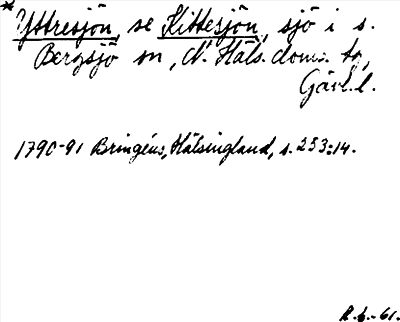 * Yttresjön, se Kittesjön, sjö i s.
Bergsjö sn, N. Häls. doms. tg,
Gävl. l.
1790-91 Bringéus, Hälsingland, s. 253:14.
R. L. -61.